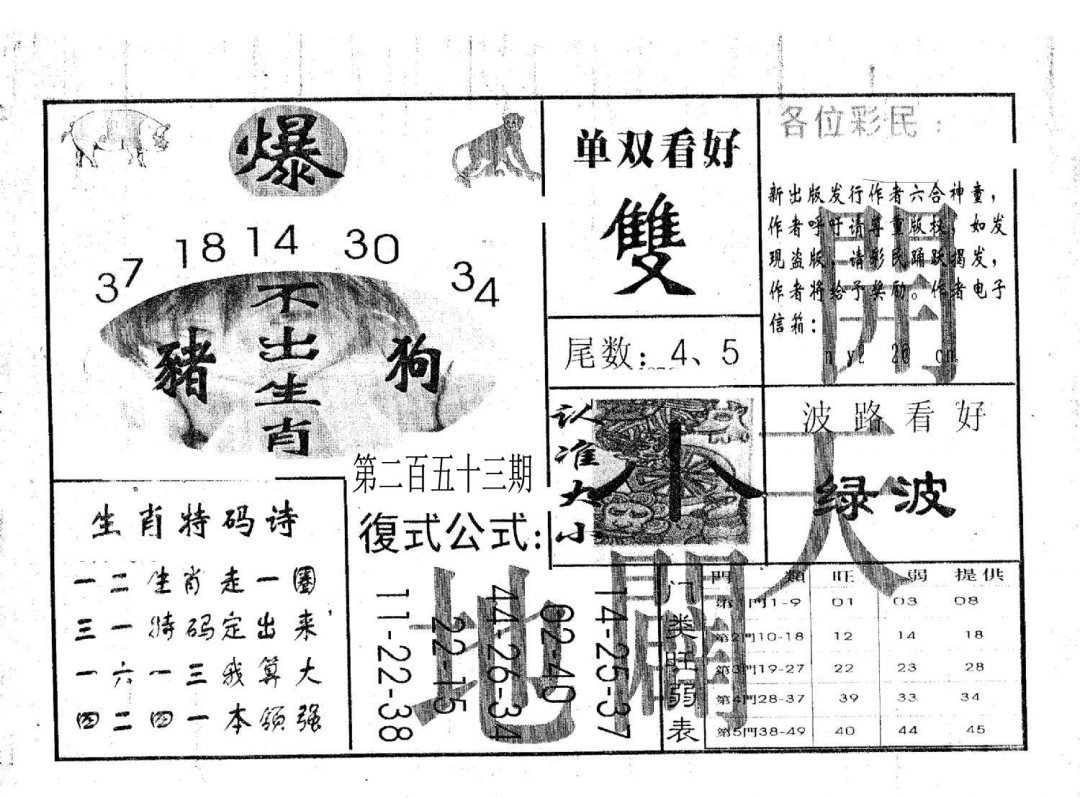 爆
37 18 14 30 34
不出生肖
豬
狗
第二百五十三期
单双看好
雙
尾数：4、5
各位彩民：
新出版发行作者六合神童，
作者呼吁请尊重版权，如发
现盗版，请彩民踊跃揭发，
作者将给予奖励。作者电子
信箱：
认准大小
小
波路看好
绿波
開天
地
生肖特码诗
一二生肖走一圈
三一特码定出来
一六一三我算大
四二四一本领强
復式公式：
11-22-38
22-15
44-26-34
02-40
14-25-37
门类旺弱表
門 類 旺 弱 提供
第1門1-9 01 03 08
第2門10-18 12 14 18
第3門19-27 22 23 28
第4門28-37 39 33 34
第5門38-49 40 44 45